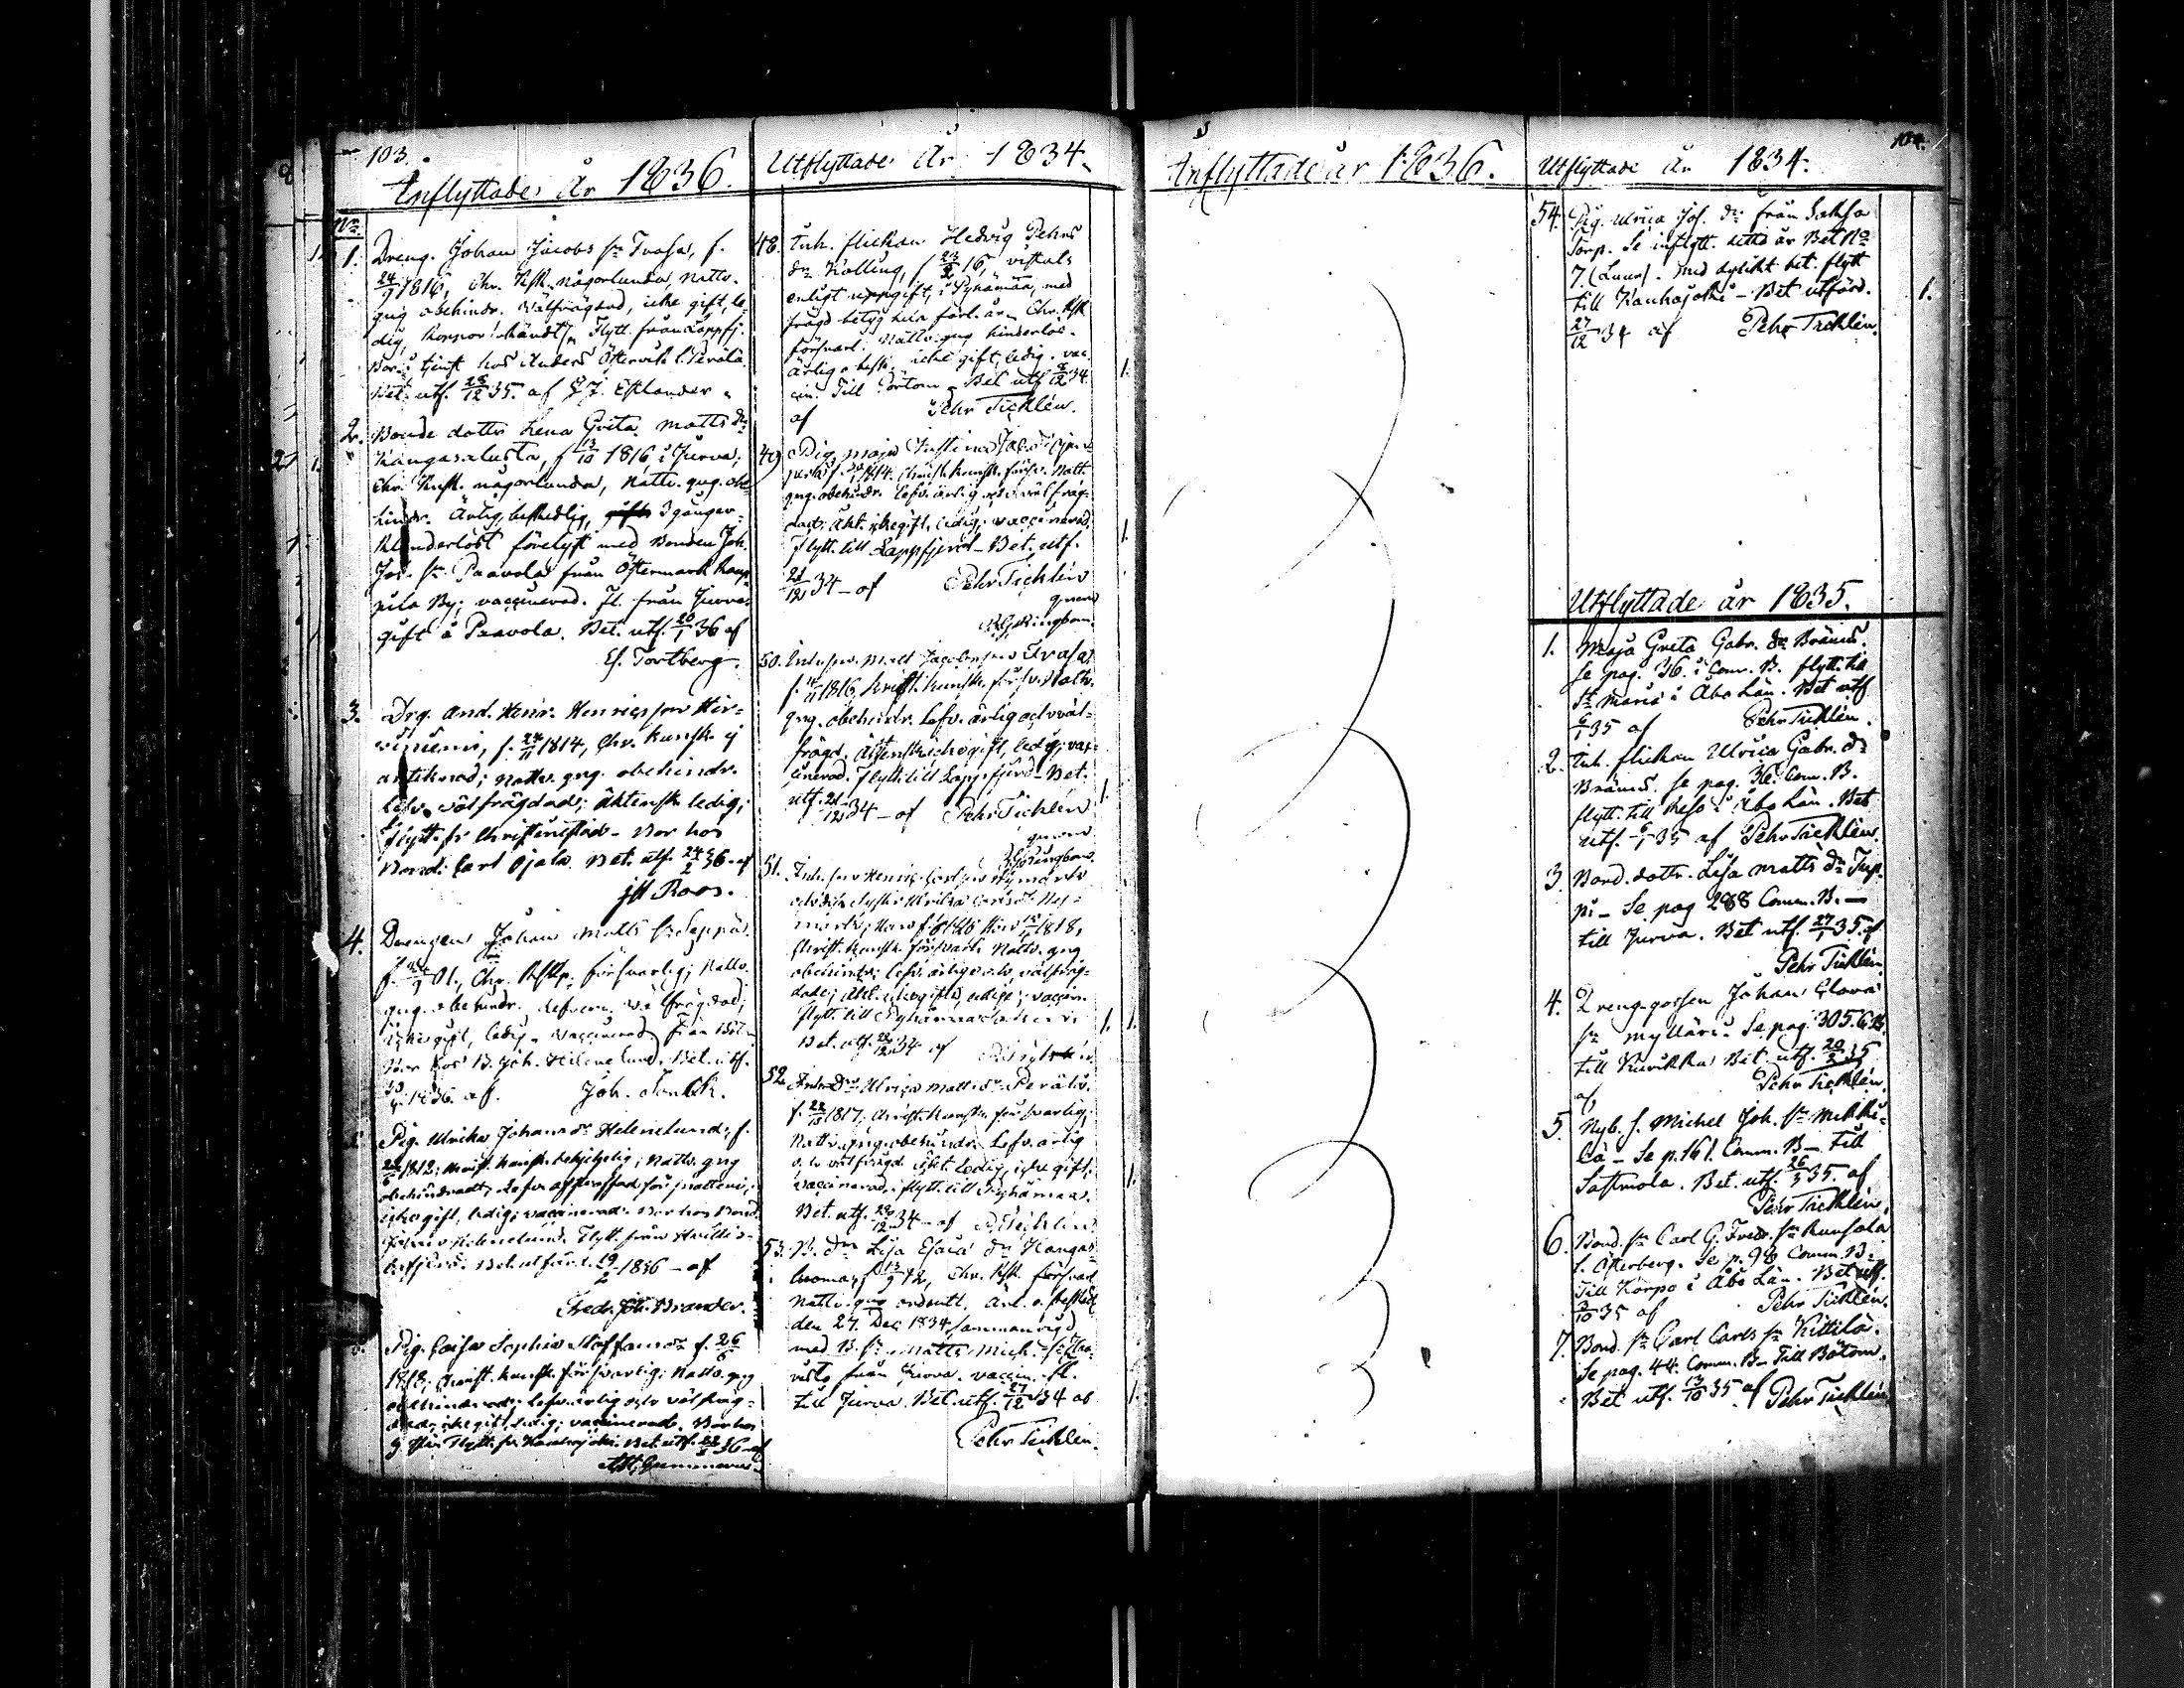 103.
Inflyttade År 1836.
No
1. Dreng. Johan Jacobs sn Tvasa, f.
24/9 1816, Chr. Ksk. någorlunda, Nattv.
gng obehindr. wälfrägdad, icke gift, le-
dig, Flytt. från Lappfj.
Bor i tjenst hos Anders Östervik l. Perälä.
Bet. utf. 28/12 35. af Estlander
2. Bonde dottr Lena Greta Matts dr
Kangasalusta, f 13/10 1816 i Jurva,
Chr. Knsk. någorlunda, Nattv. gng. obe-
hindr. Ärlig, beskedlig, 3 gånger
klanderlöst förelyst med Bonden Joh.
Jos. sn Paavola från Östermark Kaup-
pila By; vaccinerad. Fl. från Jurva
gift å Paavola. Bet. utf. 20/1 36 af
Es. Tortberg.
3. Drg. And. Henr. Henricsson Hir-
viniemi, f. 24/11 1814, Chr. kunsk. ej
antiknad; nattv. gng. obehindr.
Lefv. wälfrägdad; Äktensk. ledig;
Flytt. fr Christinestad - Bor hos
Bond. Carl Ojala. Bet. utf. 24/2 36. af
Roos.
4. Drengen Johan Matts sn Seppä
f. 01, Chr. Kskp. försvarlig; Nattv.
gng. obehindr. Lefvern. Välfrägdad;
icke gift, ledig, vaccinerad från
Bor hos B. Joh. Helenelund. Bet. utf.
1836. af Joh.
5. Pig. Ulrika Johans dr Helenelund, f.
1812; christ. kunsk. Nattv. gng
obehindradt; Lefv.
icke gift, ledig; vaccinerad. Bor hos Bond.
Helenelund. Flytt. från
Bet. utfärd. 29/2 1836 - af
Fredr. Joh. Brander.
Pig. Caisa Sophia Staffans dr f. 26/6
1818; Christ. kunsk. försvarlig; Nattv. gng
obehindrad; Lefv. ärlig och välfräg-
dad; icke gift, ledig; vaccinerad. Bor hos
Flytt. fr Bet. utf. 36 af

Utflyttade År 1834.
48. Inh. flickan Hedvig Pehrs
dr Kolling, f 23/2 16, vistats
enligt uppgift, i Sykämää, med
frägd betyg hela förl. år, Chr. Ksk
försvarl. Nattv. gng hinderlös.
ärlig o. besk. icke gift, ledig. vac-
cin. Till Portom - Bet utf 34
af Pehr Ticklén.
49. Pig. Maja Justina Jacobs dr
1814. Christ. kunsk. försv. Natt
gng. obehindr. Lefv. ärlig och wälfräg-
dad; Äkt. icke gift, ledig; vaccinerad.
Flytt. till Lappfjerd - Bet. utf.
21/12 34 - af Pehr Ticklén
genom
Ringbom.
50. Inh. son Matt Jacobsson Tvasa,
f. 1816, krist. kunsk. försv. Nattv.
gng. obehindr. Lefv. ärlig och väl-
frägd. Äktensk. icke gift, ledig; vac-
cinerad. Flytt. till Lappfjerd - Bet.
utf. 21/12 34 - af Pehr Ticklén
genom
Ringbom.
51. Inh. son Henric Carlsson Nymark
och dess syster Ulrika Carls dr Ny-
mark; 1818,
Christ. kunsk. försvarl. Nattv. gng
obehindr; Lefv. ärlig och välfräg-
dade; Äkt. icke gifta, ledige; vaccin.
flytt. till
Bet. utf. 34 af P. Ticklén
52. Ulrica Matts dr Perälä.
f. 22/10 1817; Christ. kunsk. försvarlig;
Nattv. gng. obehindr. Lefv. ärlig
o. välfrägd. Äkt. ledig, icke gift;
vaccinerad; flytt. till
Bet. utf. 34 - af P. Ticklén
53. B. dr Lisa Esaia dr Kangas-
luoma, f 13/9 12, Chr. Ksk. försvarl.
Nattv. gng ordentl. Ärl. o. beskedl
den 27. Dec 1834 sammanvigd
med B. sn Matts Mich.
från Jurva. vaccin. fl.
till Jurva. Bet. utf. 27/12 34 af
Pehr Ticklén.

Inflyttade år 1836.

104.
Utflyttade År 1834.
54. Pig. Ulrica Jos. dr från Saksa
Torp. Se inflytt. detta år Bet No
7 (Laur). Med dylikt bet. flytt
till Kauhajoki - Bet utfärd.
27/12 34 af Pehr Ticklén.
Utflyttade år 1835.
1. Maja Greta Gabr. dr Bränn.
Se pag. 36. i Com. B. flytt. till
St Maria i Åbo Län. Bet utf
6/1 35 af Pehr Ticklén.
2. Inh. flickan Ulrica Gabr. dr
Bränn. Se pag. 36. Com. B.
flytt. till Reso i Åbo Län. Bet
utf. 6/1 35 af Pehr Ticklén.
3. Bond. dottr. Lisa Matts dr Tup-
pi - Se pag 288 Comm. B. -
till Jurva. Bet utf. 27/1 35. af
Pehr Ticklén
4. Dreng. gossen Johan
sn Mylläri. Se pag. 305. C. B.
till Kurikka Bet. utf. 20/2 35
af Pehr Ticklén
5. Nyb. s. Michel Joh. sn Mikki-
lä - Se p. 161. Comm. B - till
Sastmola. Bet. utf. 26/3 35. af
Pehr Ticklén.
6. Bond. sn Carl G. Fredr. sn Runsala
l. Österberg. Se p. 98 Comm. B.
Till Korpo i Åbo Län. Bet utf.
3/10 35 af Pehr Ticklén.
7. Bond. sn Carl Carls sn Kittilä.
Se pag. 44. Comm. B - Till Bötom.
Bet utf. 13/10 35 af Pehr Ticklén